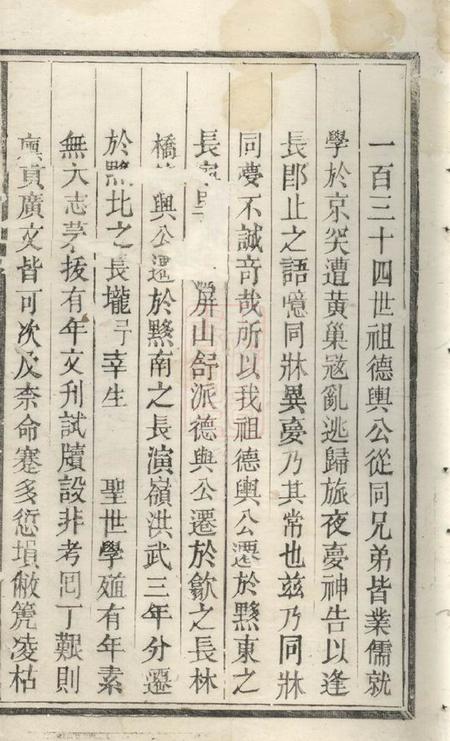 一百三十四世祖德輿公從同兄弟皆業儒就
學於京突遭黃巢寇亂逃歸旅夜夢神告以逢
長即止之語噫同牀異夢乃其常也茲乃同牀
同夢不誠奇哉所以我祖德輿公遷於黟東之
長 屏山舒派德輿公遷於歙之長林
橋 輿公遷於黟南之長演嶺洪武三年分遷
於黟北之長壠予幸生 聖世學殖有年素
無大志茅拔有年文刊試牘設非考囘丁艱則
廩貢廣文皆可次及柰命蹇多愆塤僌箎凌枯